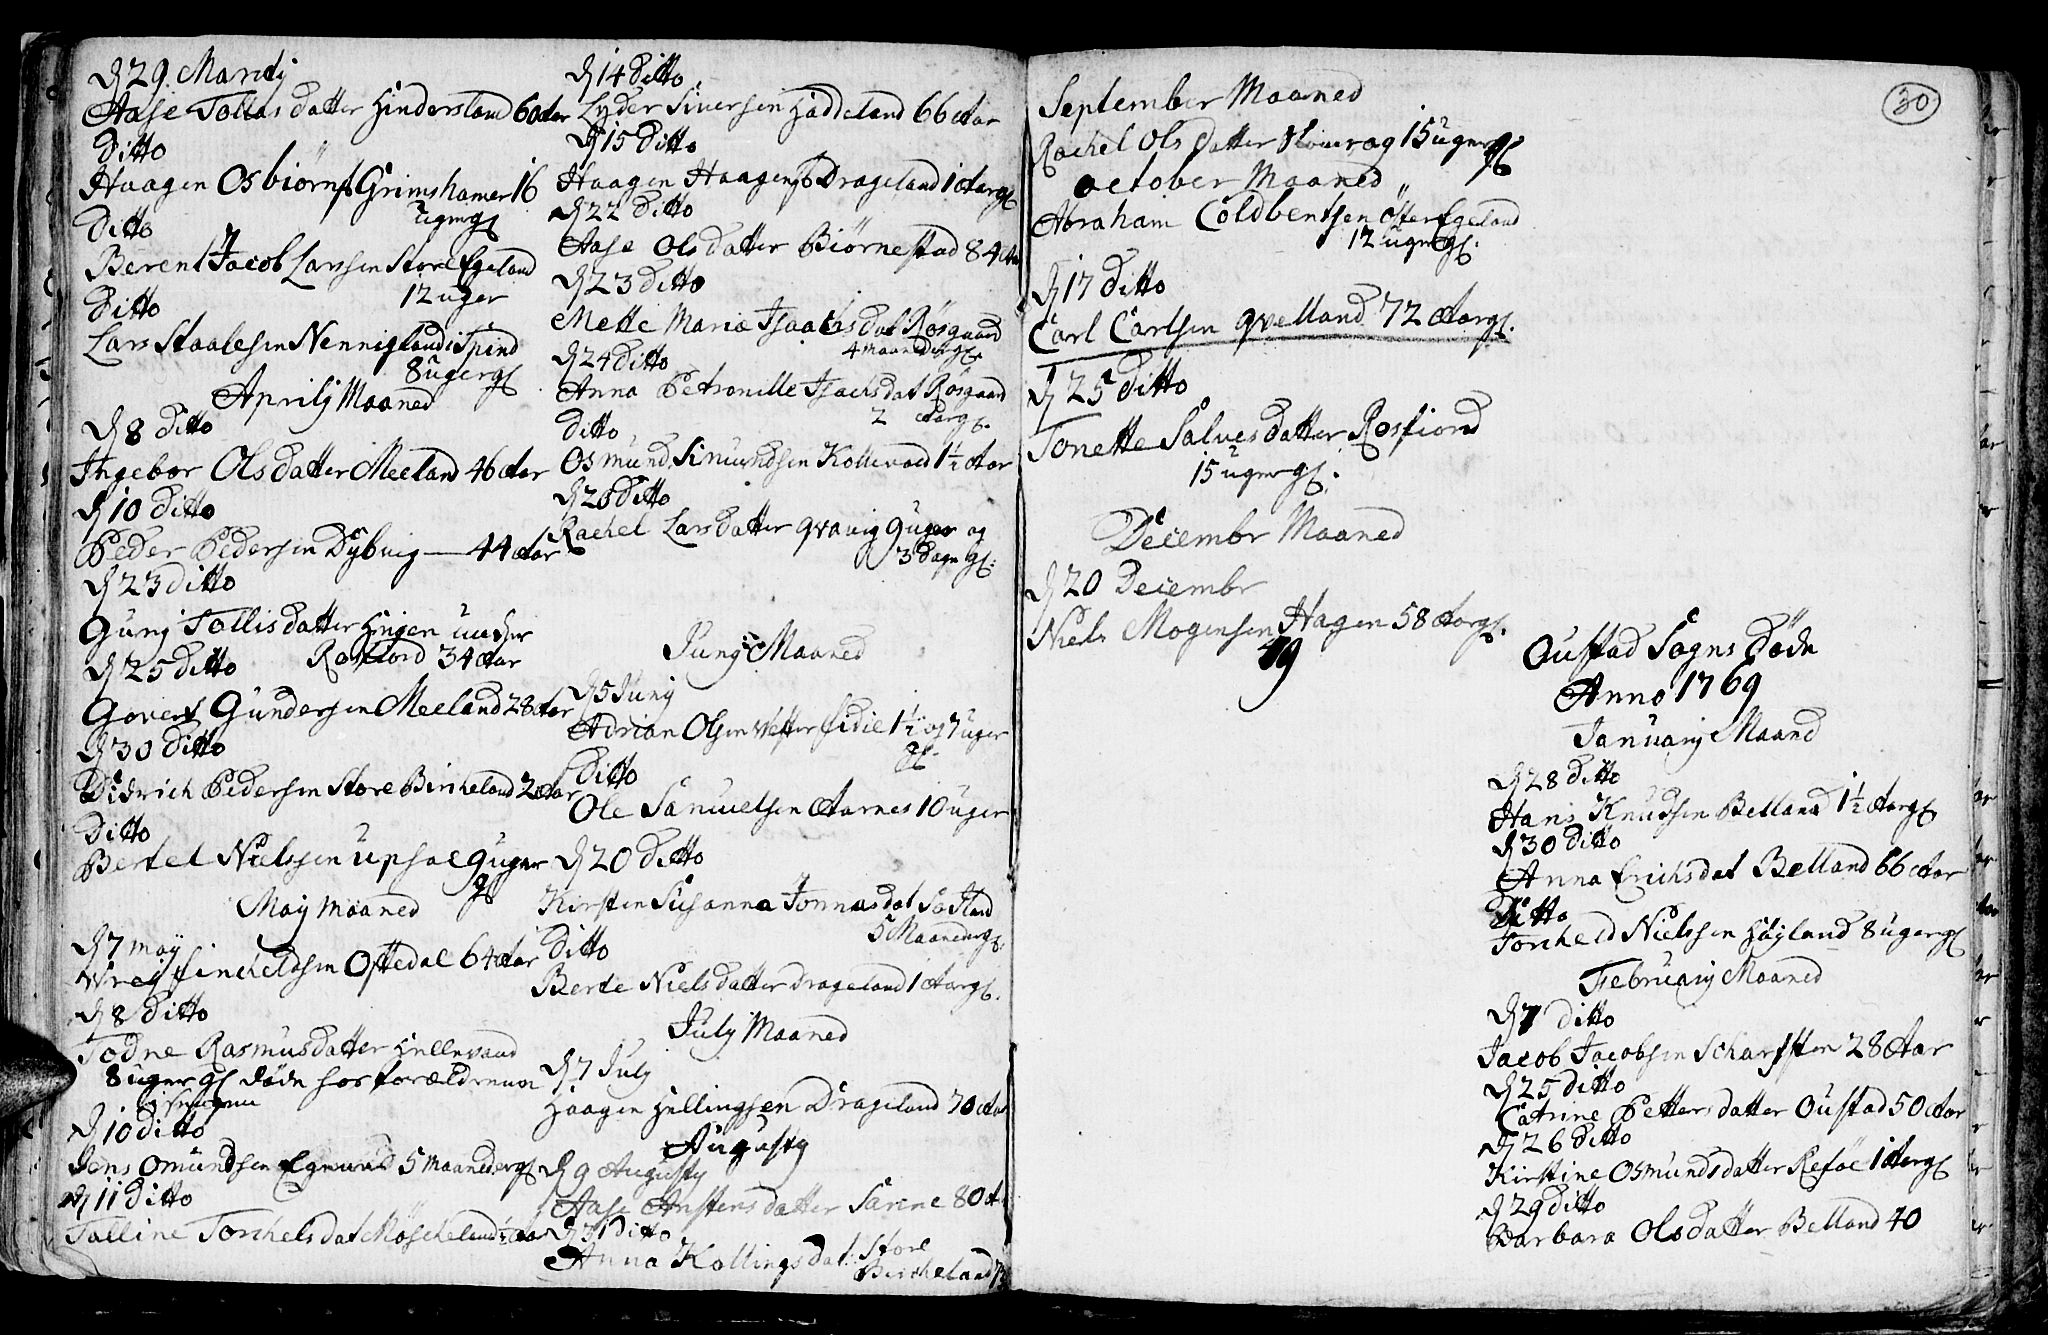 D 29 Martij
Aase Tollas datter Hindersland 60 Aar
Ditto
Haagen Osbiörns Grimshamer 16
uger gl
Ditto
Berent Jacob Larssen Store Egeland
12 uger
Ditto
Lars Staalesen Nennigland i Spind
8 uger gl
Aprilij Maaned
D 8 Ditto
Ingebor Olsdatter Meeland 46 Aar
D 10 Ditto
Peder Pedersen Dybvig — 44 Aar
D 23 Ditto
Gunj Tollisdatter under
Rosfiord 34 Aar
D 25 Ditto
Govert Gundersen Meeland 28 Aar
D 30 Ditto
Didrich Pedersen Store Bircheland 2 Aar
Ditto
Bertel Nielssen upsal 9 uger
gl
May Maaned
D 7 may
Wrej Sinckeldsen Oftedal 64 Aar
D 8 Ditto
Todne Rasmusdatter Hellevand
8 uger gl döde hos forældrenne
D 10 Ditto
Jens Omundsen Egeund 5 Maaneder gl
D 11 Ditto
Talline Torchelsdat Möscheland ½ Aar
D 14 Ditto
Lyder Siversen Haddeland 66 Aar
D 15 Ditto
Haagen Haagens Drageland 1 Aar gl
D 22 Ditto
Aase Olsdatter Biörnestad 84 Aar
D 23 Ditto
Mette Maria Isaachsdat Rösgaard
4 Maaneder gl.
D 24 Ditto
Anna Petronille Isachsdat Rösgaard
2 Aar gl.
Ditto
Osmund Simundsen Kollevold 1½ Aar
D 28 Ditto
Rachel Larsdatter qvavig 9 uger og
3 Dage gl:
Junij Maaned
D 5 Junij
Adrian Olsen Vester Eidie 1½ og 7 uger
gl.
Ditto
Ole Samuelsen Aarnes 10 uger
D 20 Ditto
Kirsten Susanna Jonnasdat
5 Maaneder gl.
Ditto
Berte Nielsdatter Drageland 1 Aar gl.
July Maaned
D 7 July
Haagen Hellingsen Drageland 70 Aar
Augusty
D 9 Augusty
Aase Anstensdatter Sanne 80 A
D 31 Ditto
Anna Kollingsdat: Store
Bircheland
30
September Maaned
Rachel Olsdatter 15 uger gl
October Maaned
Abraham Coldbentsen Öster Egeland
12 uger gl.
D 17 Ditto
Carl Carlsen qvelland 72 Aar gl.
D 25 Ditto
Tonette Salvesdatter Rosfiord
15 uger gl.
Decembr Maaned
D 20 Decembr
Niels Mogensen Hagen 58 Aar gl.
49
Oustad Sogns Döde
Anno 1769
January Maaned
D 28 Ditto
Hans Knudsen Belland 1½ Aar gl
D 30 Ditto
Anna Erichsdat Belland 66 Aar
Ditto
Torcheld Nielssen Höyland 8 uger gl
February Maaned
D 7 Ditto
Jacob Jacobsen Scharpsten 28 Aar
D 25 Ditto
Catrine Pettersdatter Oustad 50 Aar
D 26 Ditto
Kirstine Osmundsdatter Reföe 1 Aar gl
D 29 Ditto
Barbara Olsdatter Belland 40